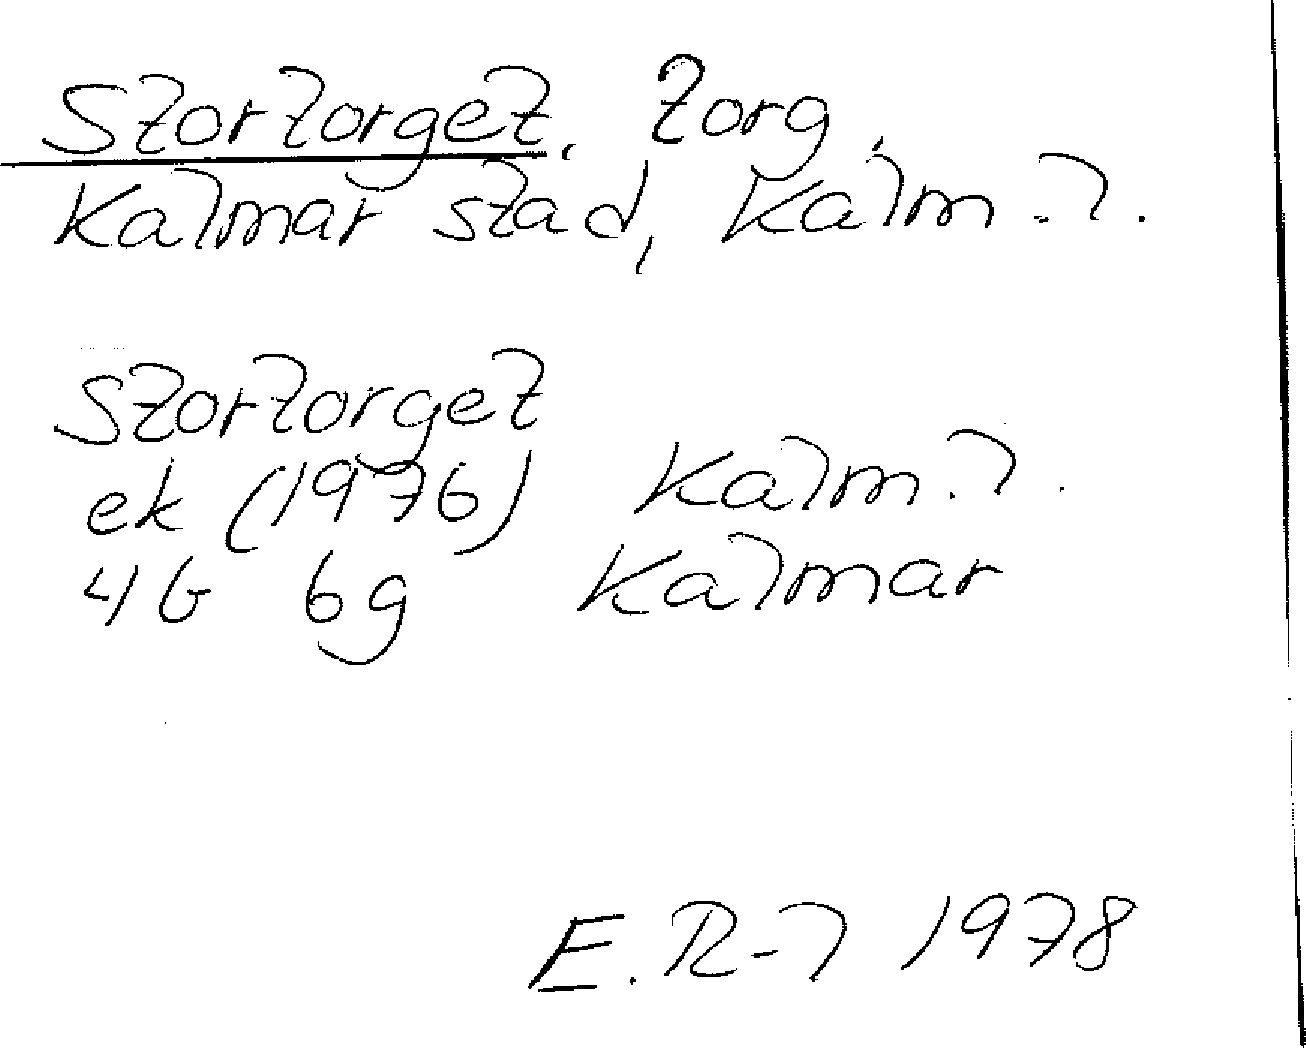 Stortorget, torg,
Kalmar stad, Kalm. l.
Stortorget
ek (1976) Kalm. l.
4G 6g Kalmar
E. R-l 1978